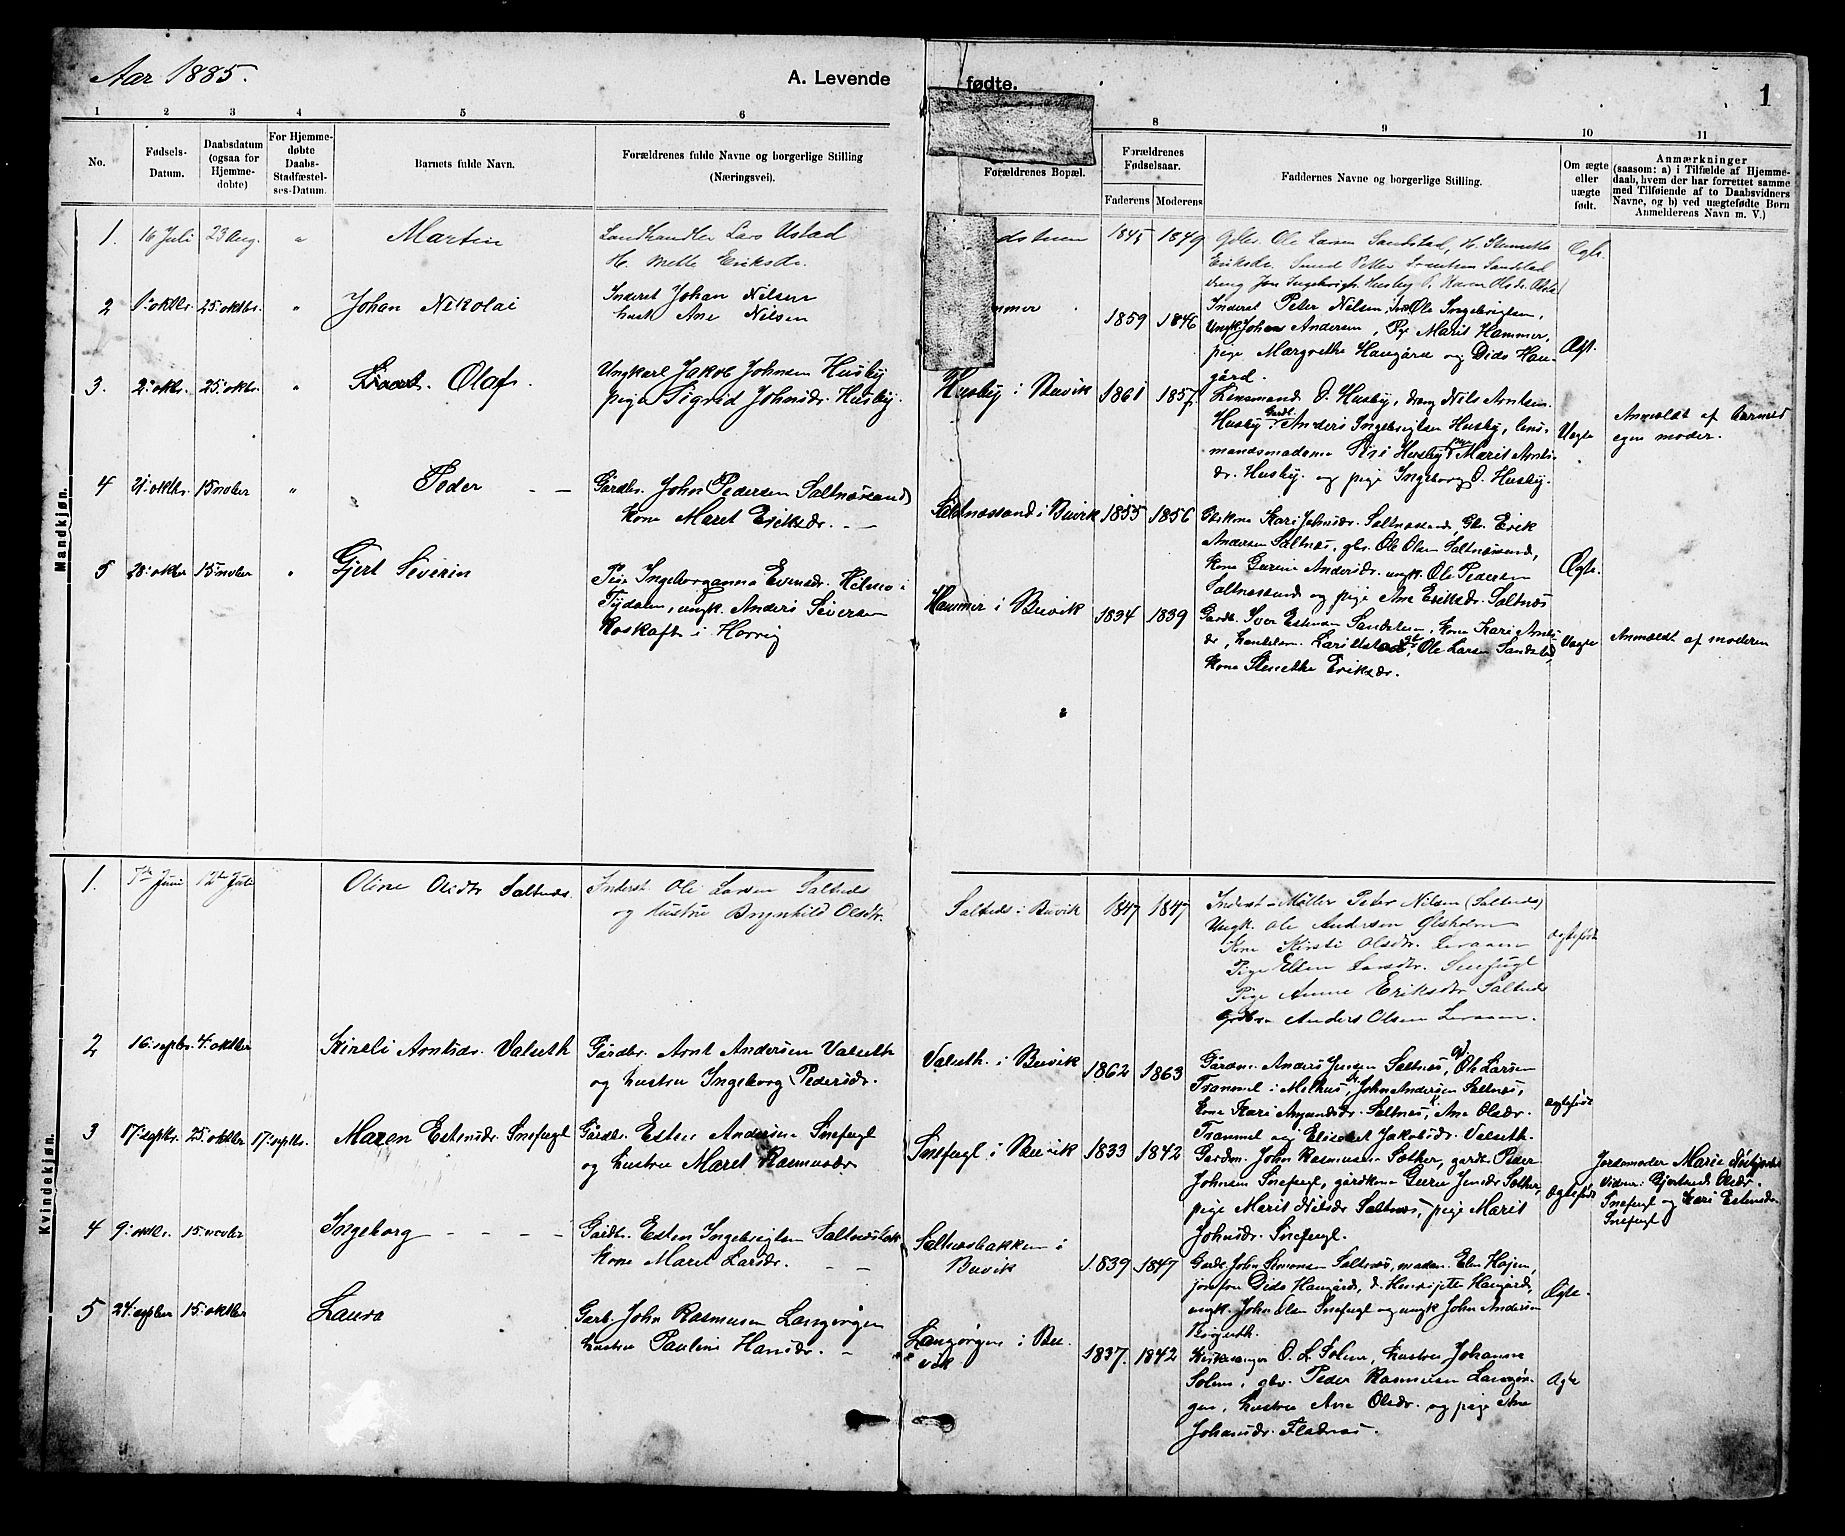 Aar 1885.
A. Levende fødte.
1
1 2 3 4 5 6 8 9 10 11
No.
Fødsels-
Datum.
Daabsdatum
(ogsaa for
Hjemme-
døbte)
For Hjemme-
døbte
Daabs-
Stadfæstel-
ses-Datum.
Barnets fulde Navn.
Forældrenes fulde Navne og borgerlige Stilling
(Næringsvei).
Forældrenes Bopæl.
Forældrenes
Fødselsaar.
Faderens Moderens
Faddernes Navne og borgerlige Stilling.
Om ægte
eller
uægte
født.
Anmærkninger
(saasom: a) i Tilfælde af Hjemme-
daab, hvem der har forrettet samme
med Tilføiende af to Daabsvidners
Navne, og b) ved uægtefødte Børn
Anmelderens Navn m. V.)
Mandkjøn.
1. 16 Juli 23 Aug. " Martin
Landhandler Lars Ustad
H. Mette Eriksdr.
1845 1849
Gbr. Ole Larsen Sandstad, H.
Eriksdr. Smed Petter Sandstad
Ægte
2 25. oktbr. " Johan Nikolai
Inderst Johan Nilsen
hust. Ane Nilsen
1859 1846
Inderst Peter Nilsen, Ole Ingebrigtsen,
Ungk. Johans Andersen, Pige Marit Hammer,
pige Margrethe Haugård og Dids Hau-
gård.
Ægt.
3. 2. oktbr. 25. oktbr. " Olaf
Ungkarl Jakob Johnsen Husby
pige Sigrid Johnsdr. Husby.
Husby i Buvik 1861 1857
Lensmand O. Husby, dreng Nils Arntsen
Husby, Gardb. Anders Ingebrigtsen Husby, lens-
mandsmadame Husby, pige Marit Arnts-
dr. Husby. og pige Ingeborg O. Husby.
Uægte
Anmeldt af barnets
egen moder.
4 21. oktbr. 15 novber " Peder — —
Gårdbr. John Pedersen Saltnessand
Kone Maret Eriksdr. — —
Saltnessand i Buvik 1855 1856
Kari Johnsdr. Saltnessand, Gbr. Erik
Andersen Saltnes, gbr. Ole Olsen Saltnessand,
Kone Guren Andersdr. ungk. Ole Pedersen
Saltnessand og pige Ane Eriksdr. Saltnes
Ægte.
5 28. oktber 15 novber " Gjert Severin
Pige Ingeborganna Evensdr. Hilmo i
Tydalen, ungk. Anders Sivertsen
Roskaft i Horrig
Hammer i Buvik 1834 1839
Gardb. Iver Estensen Sandsten, Kone Kari Arnts-
dr, Landhdm. Lars Ustad, Ole Larsen Sandstad,
Kone Stenethe Eriksdr.
Uægte
Anmeldt af moderen
Kvindekjøn.
1. 5te Juni 12te Juli Oline Olsdtr Saltnes
Inderst Ole Larsen Saltnes
og hustru Brynhild Olsdtr.
Saltnes i Buvik 1847 1847
Inderst - Møller Peter Nilsen (Saltnes)
Ungk. Ole Andersen Ølsholm
Kone Kirsti Olsdtr. Leraaen
Pige Ellen Larsdtr. Snefugl
Pige Anne Eriksdtr Saltnes
Anders Olsen Leraaen.
ægtefødt
2 16. septbr. 4. oktber Kireli Arntsdr. Valseth
Gårdbr. Arnt Andersen Valseth
og hustru Ingeborg Pedersdr.
Valseth. i Buvik 1862 1863
Gårdm. Anders Jensen Saltnes, Ole Larsen
Trammel i Melhus, John Andersen Saltnes,
Kone Kari Amundsdr. Saltnes, Ane Olsdr.
Trammel og Elisabet Jakobsdr. Valseth.
ægtefødt
3 17. septbr. 25. oktber 17. septbr. Maren Estensdr. Snefugl
Gårdbr. Esten Andersen Snefugl
og hustru Maret Rasmusdr
Snefugl i Buvik 1833 1842
Gardm. John Rasmussen Sæther, gardb. Peder
Johnsen Snefugl, gårdkone Guru Jensdr Sæther,
pige Marit Nilsdr Saltnes, pige Marit
Johnsdr. Snefugl.
Ægtefødt
Jordemoder Marie
Vidner: Gjertrud Olsdr.
Snefugl og Kari Estensdr.
Snefugl
4 9. oktbr. 15. novbr Ingeborg — — — —
Gårdb. Esten Ingebrigtsen Saltnesbak
Kone Maret Larsdr. — —
Saltnesbakken i
Buvik
1839 1847
Gardb. John Simonsen Saltnes, madam. Elen Høien,
jomfru Dids Haugård, d. Henriette Haugård,
ungk. John Olsen Snefugl og ungk John Andersen
Ægte.
5 24. septber 15. oktbr Laura — — —
Garb. John Rasmussen Langørgen
hustru Pauline Hansdr. —
Langørgen i Bu-
vik
1837. 1842
Kirkesanger O. L. Solem, hustru Johanna
Solem, gbr. Peder Rasmussen Langør-
gen, hustru Ane Olsdr. og pige Ane
Johansdr. Fladnes.
Ægte